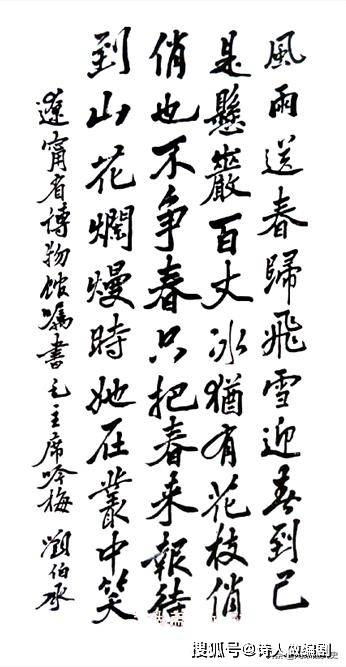 風雨送春歸飛雪迎春到已
是懸巖百丈冰猶有花枝俏
俏也不争春只把春来報待
到山花爛熳時她在叢中笑
遼甯省博物館囑書毛主席咏梅 劉伯承
搜狐号@诗人做编剧